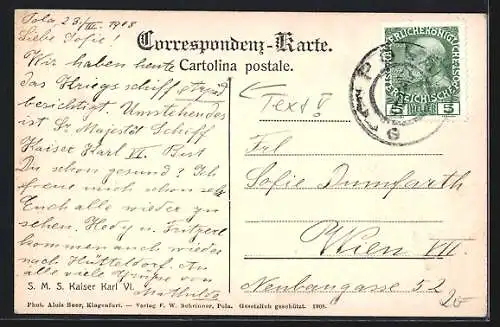 Pola 23/III. 1908
Correspondenz-Karte.
Cartolina postale.
Liebe Sofie!
Wir haben heute
das Kriegsschiff
besichtigt. Umstehendes
ist Sr Majestät Schiff
Kaiser Karl VI. Bist
Du schon gesund? Ich
freue mich schon sehr
Euch alle wieder zu
sehen. Hedy u. Fritzerl
kommen auch wieder
nach Hütteldorf. An
alle viele Grüsse von
Mathilde
S. M. S. Kaiser Karl VI.
Phot. Alois Beer, Klagenfurt. — Verlag F. W. Schrinner, Pola. Gesetzlich geschützt. 1908.
Text!
Frl
Sofie Dumfarth
Wien VII.
Neubaugasse 52
20
5 HELLER 5